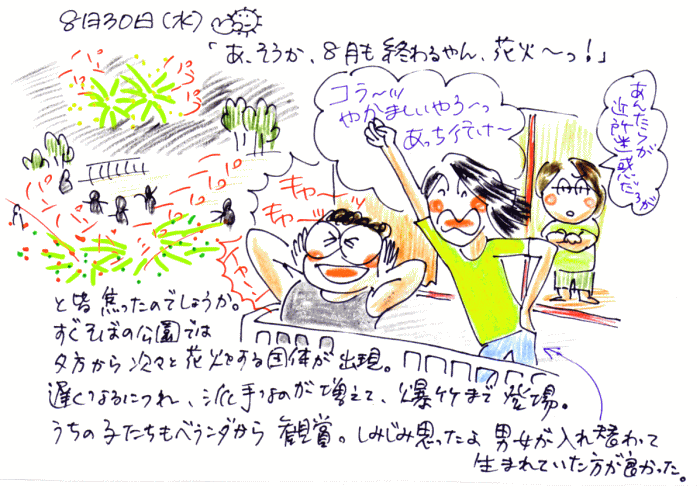 8月30日(水)
「あ、そうか、8月も終わるやん、花火〜っ!」
パン
パン
パン
パン
コラ〜ッ
やかましいやろ〜っ
あっち行け〜
あんたらが
近所迷惑だろが
キャーッ
キャーッ
と皆焦ったのでしょうか。
すぐそばの公園では
夕方から次々と花火をする団体が出現。
遅くなるにつれ、派手なのが増えて、爆竹まで登場。
うちの子たちもベランダから観賞。しみじみ思ったよ男女が入れ替わって
生まれていた方が良かった。